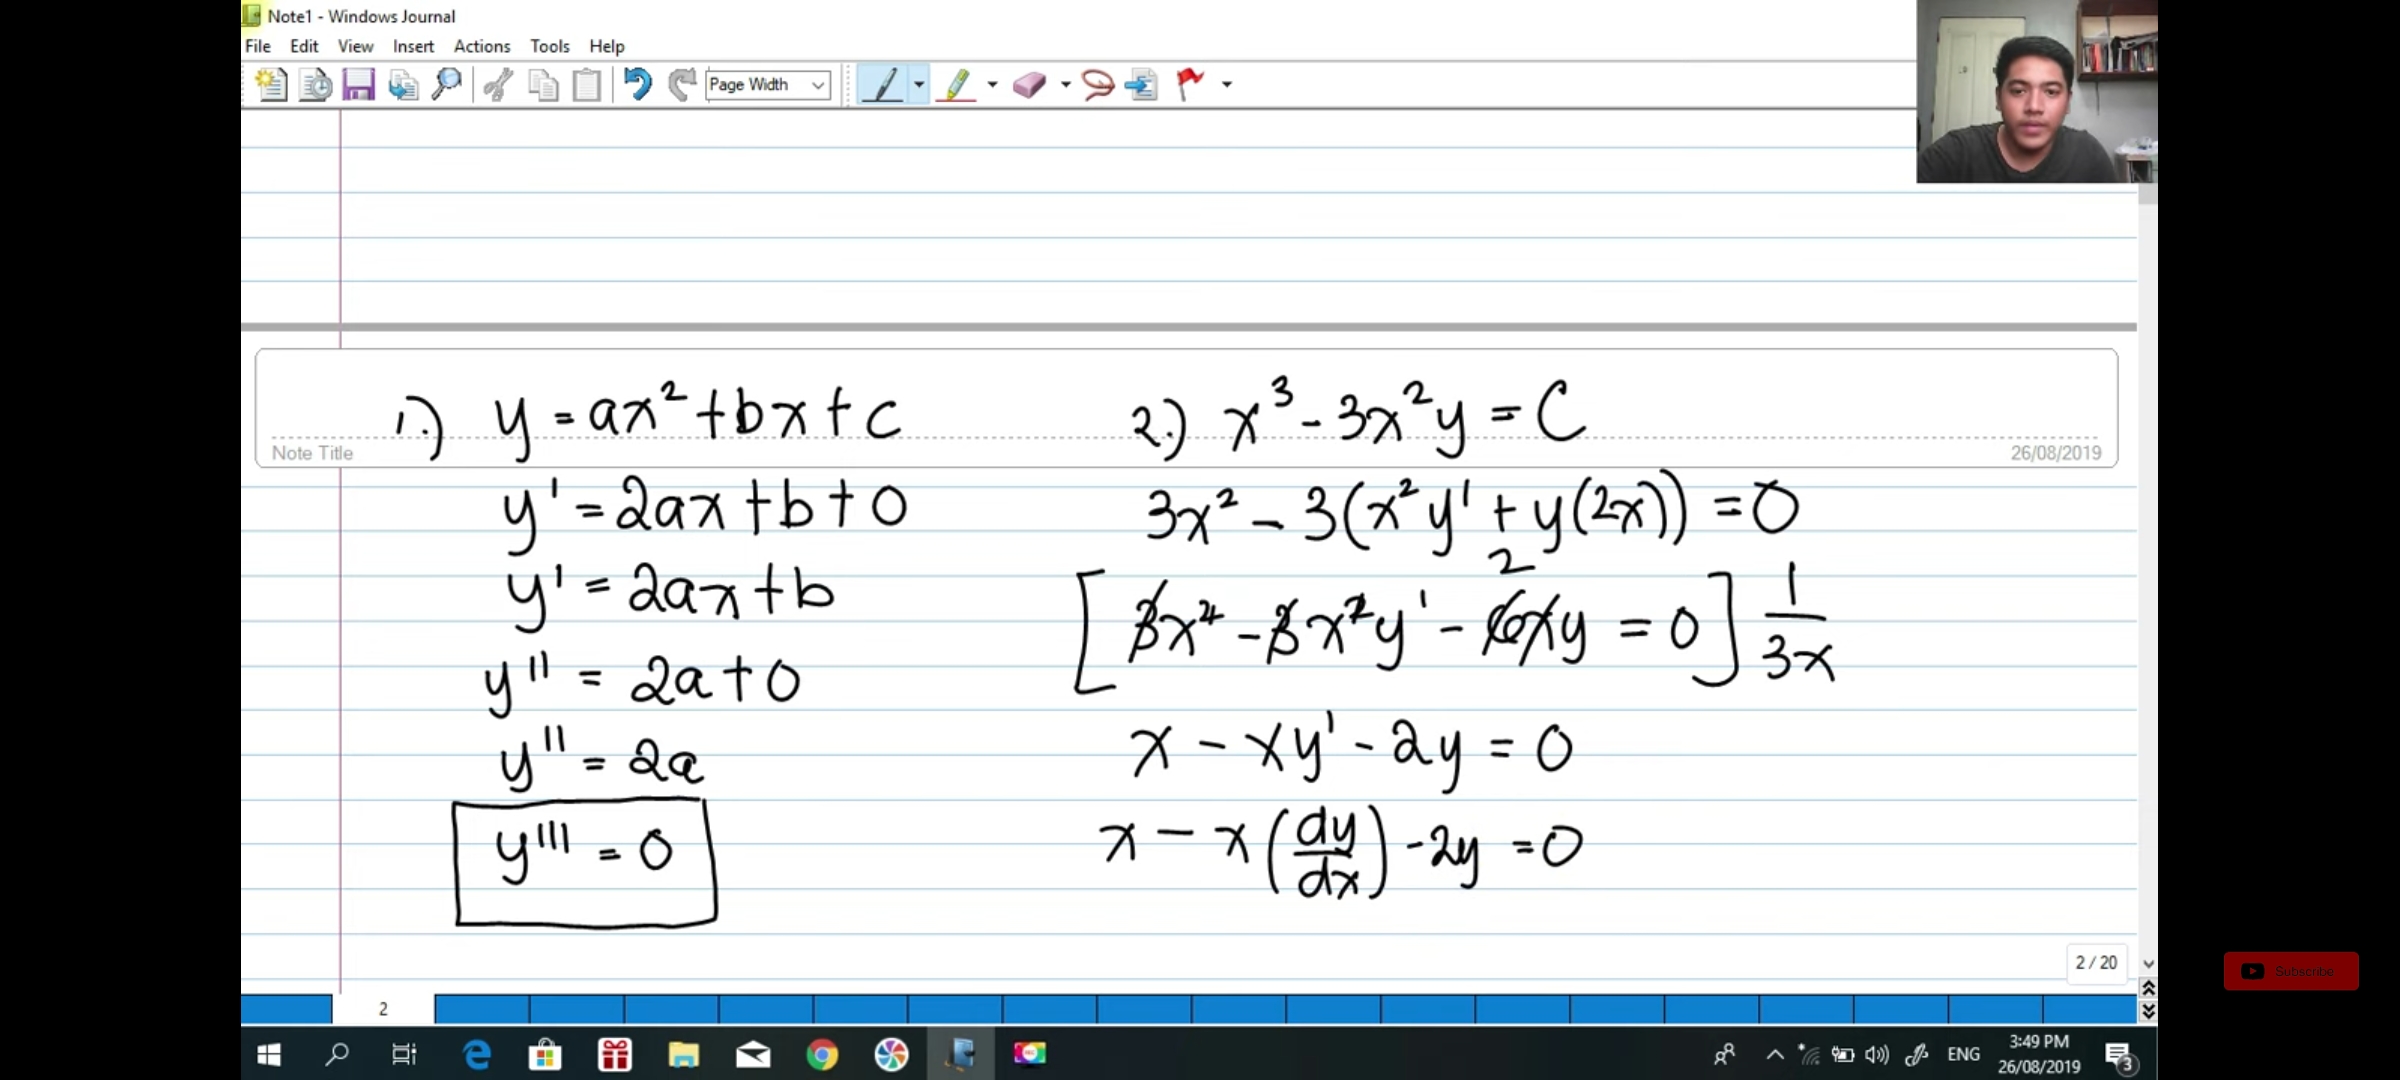 Note1 - Windows Journal
File Edit View Insert Actions Tools Help
Page Width
1.) y = ax² + bx + c
Note Title
y' = 2ax + b + 0
y' = 2ax + b
y'' = 2a + 0
y'' = 2a
y''' = 0
2.) x³ - 3x²y = C
26/08/2019
3x² - 3(x²y' + y(2x)) = 0
2
[3x² - 3x²y' - 6xy = 0] 1/3x
x - xy' - 2y = 0
x - x(dy/dx) - 2y = 0
2 / 20
Subscribe
2
ENG
3:49 PM
26/08/2019
3